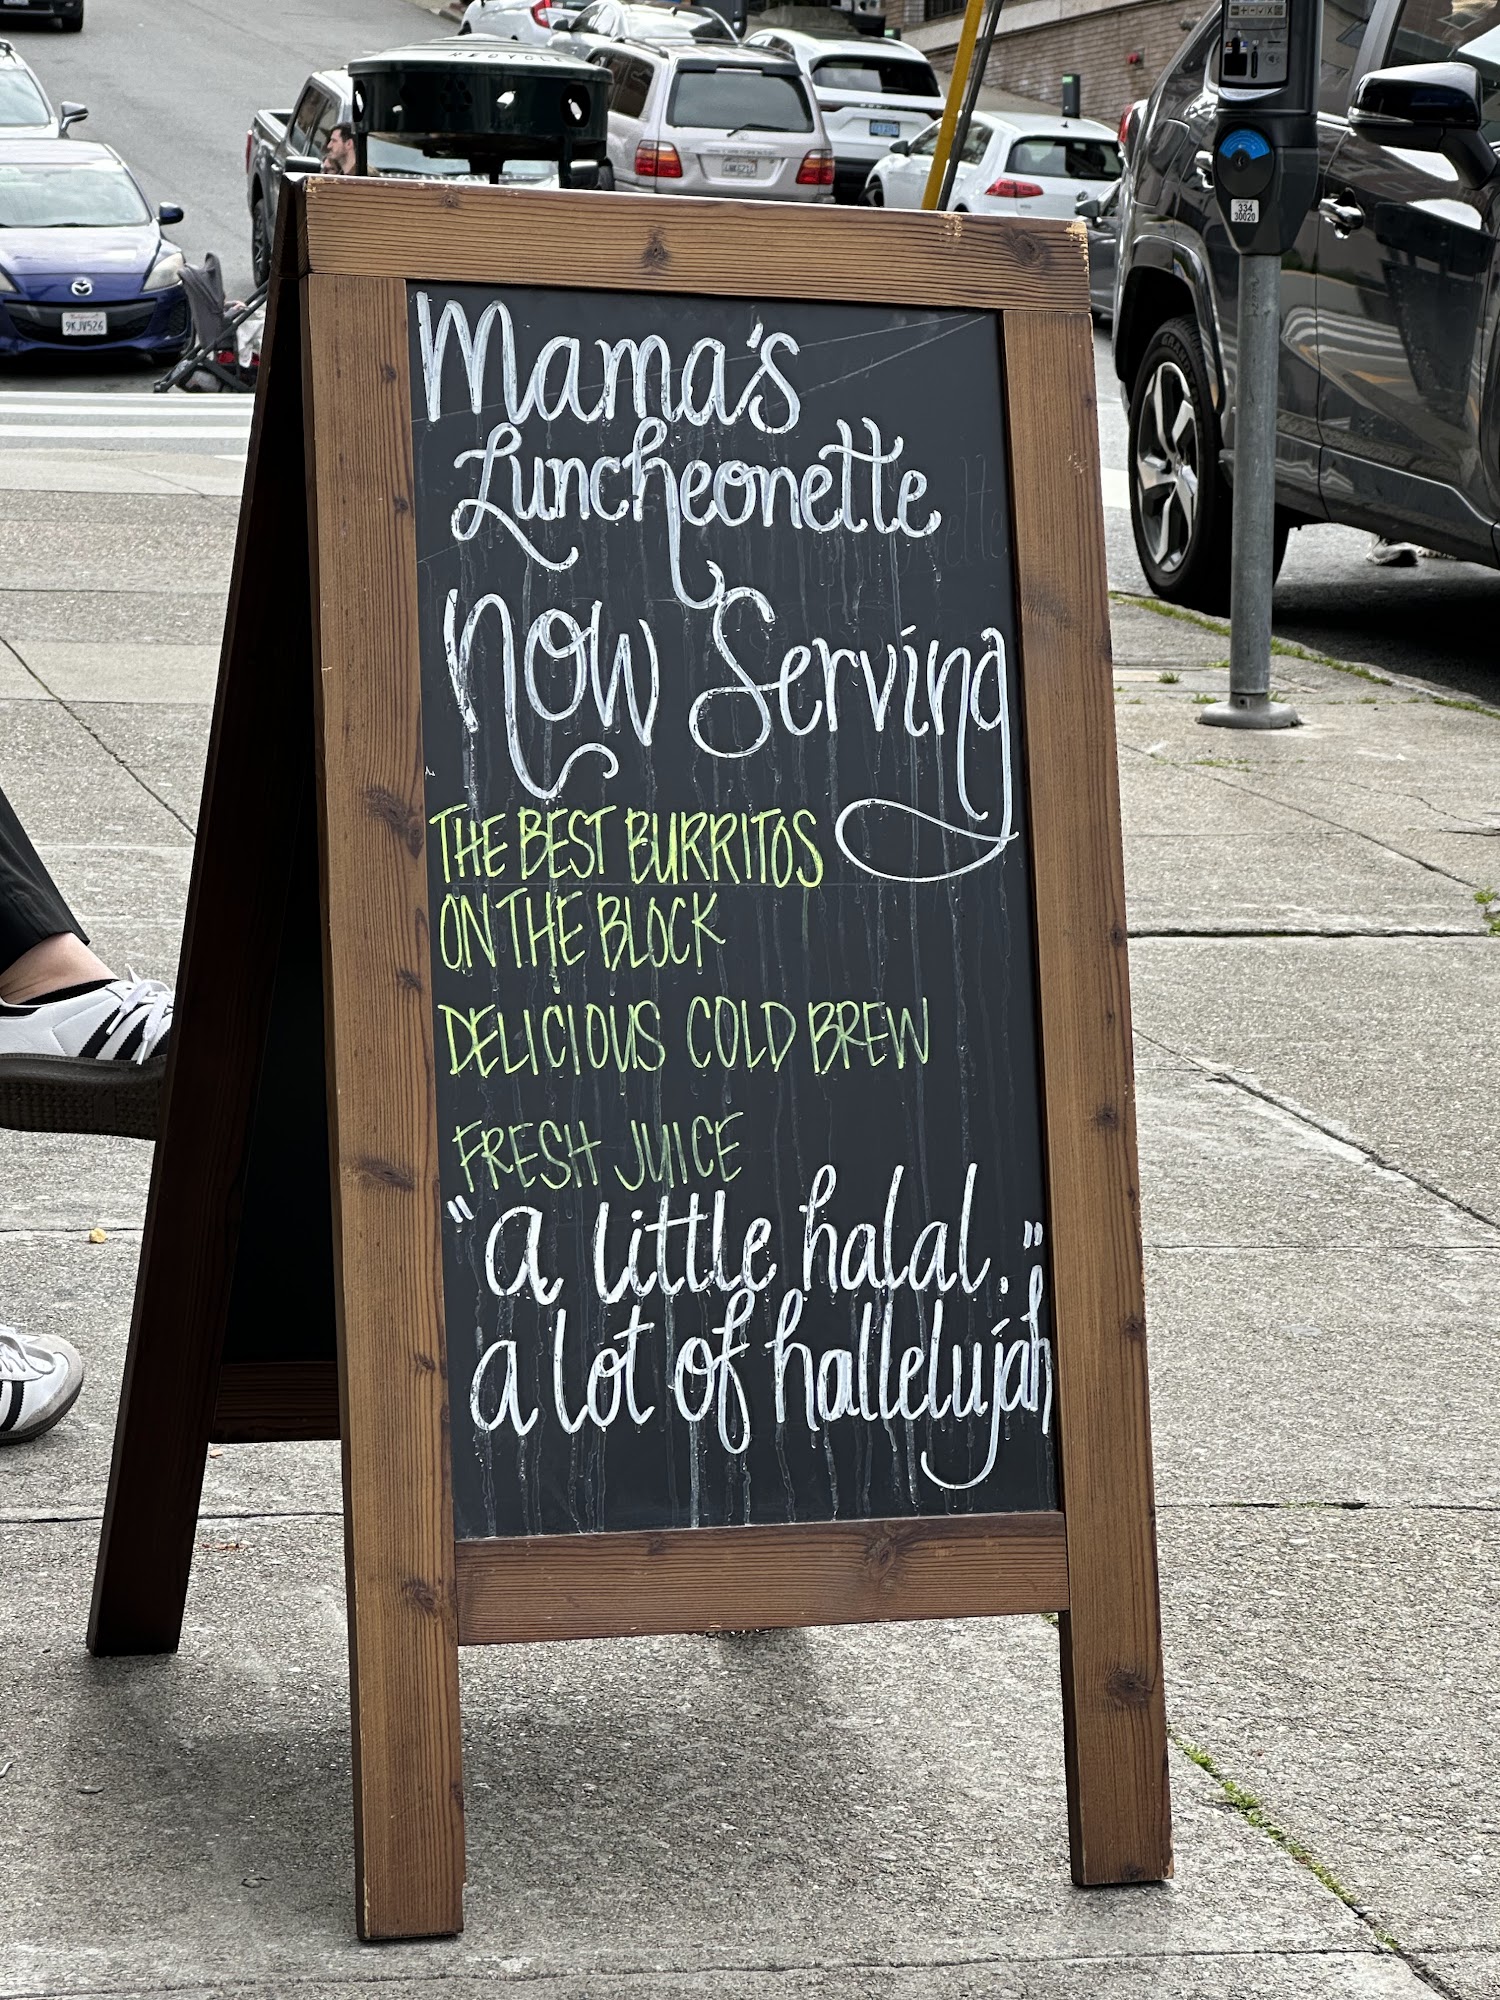 RECYCLE
9KJV526
334
30020
Mama's
Luncheonette
Now Serving
THE BEST BURRITOS
ON THE BLOCK
DELICIOUS COLD BREW
FRESH JUICE
"a little halal.
a lot of hallelujah"